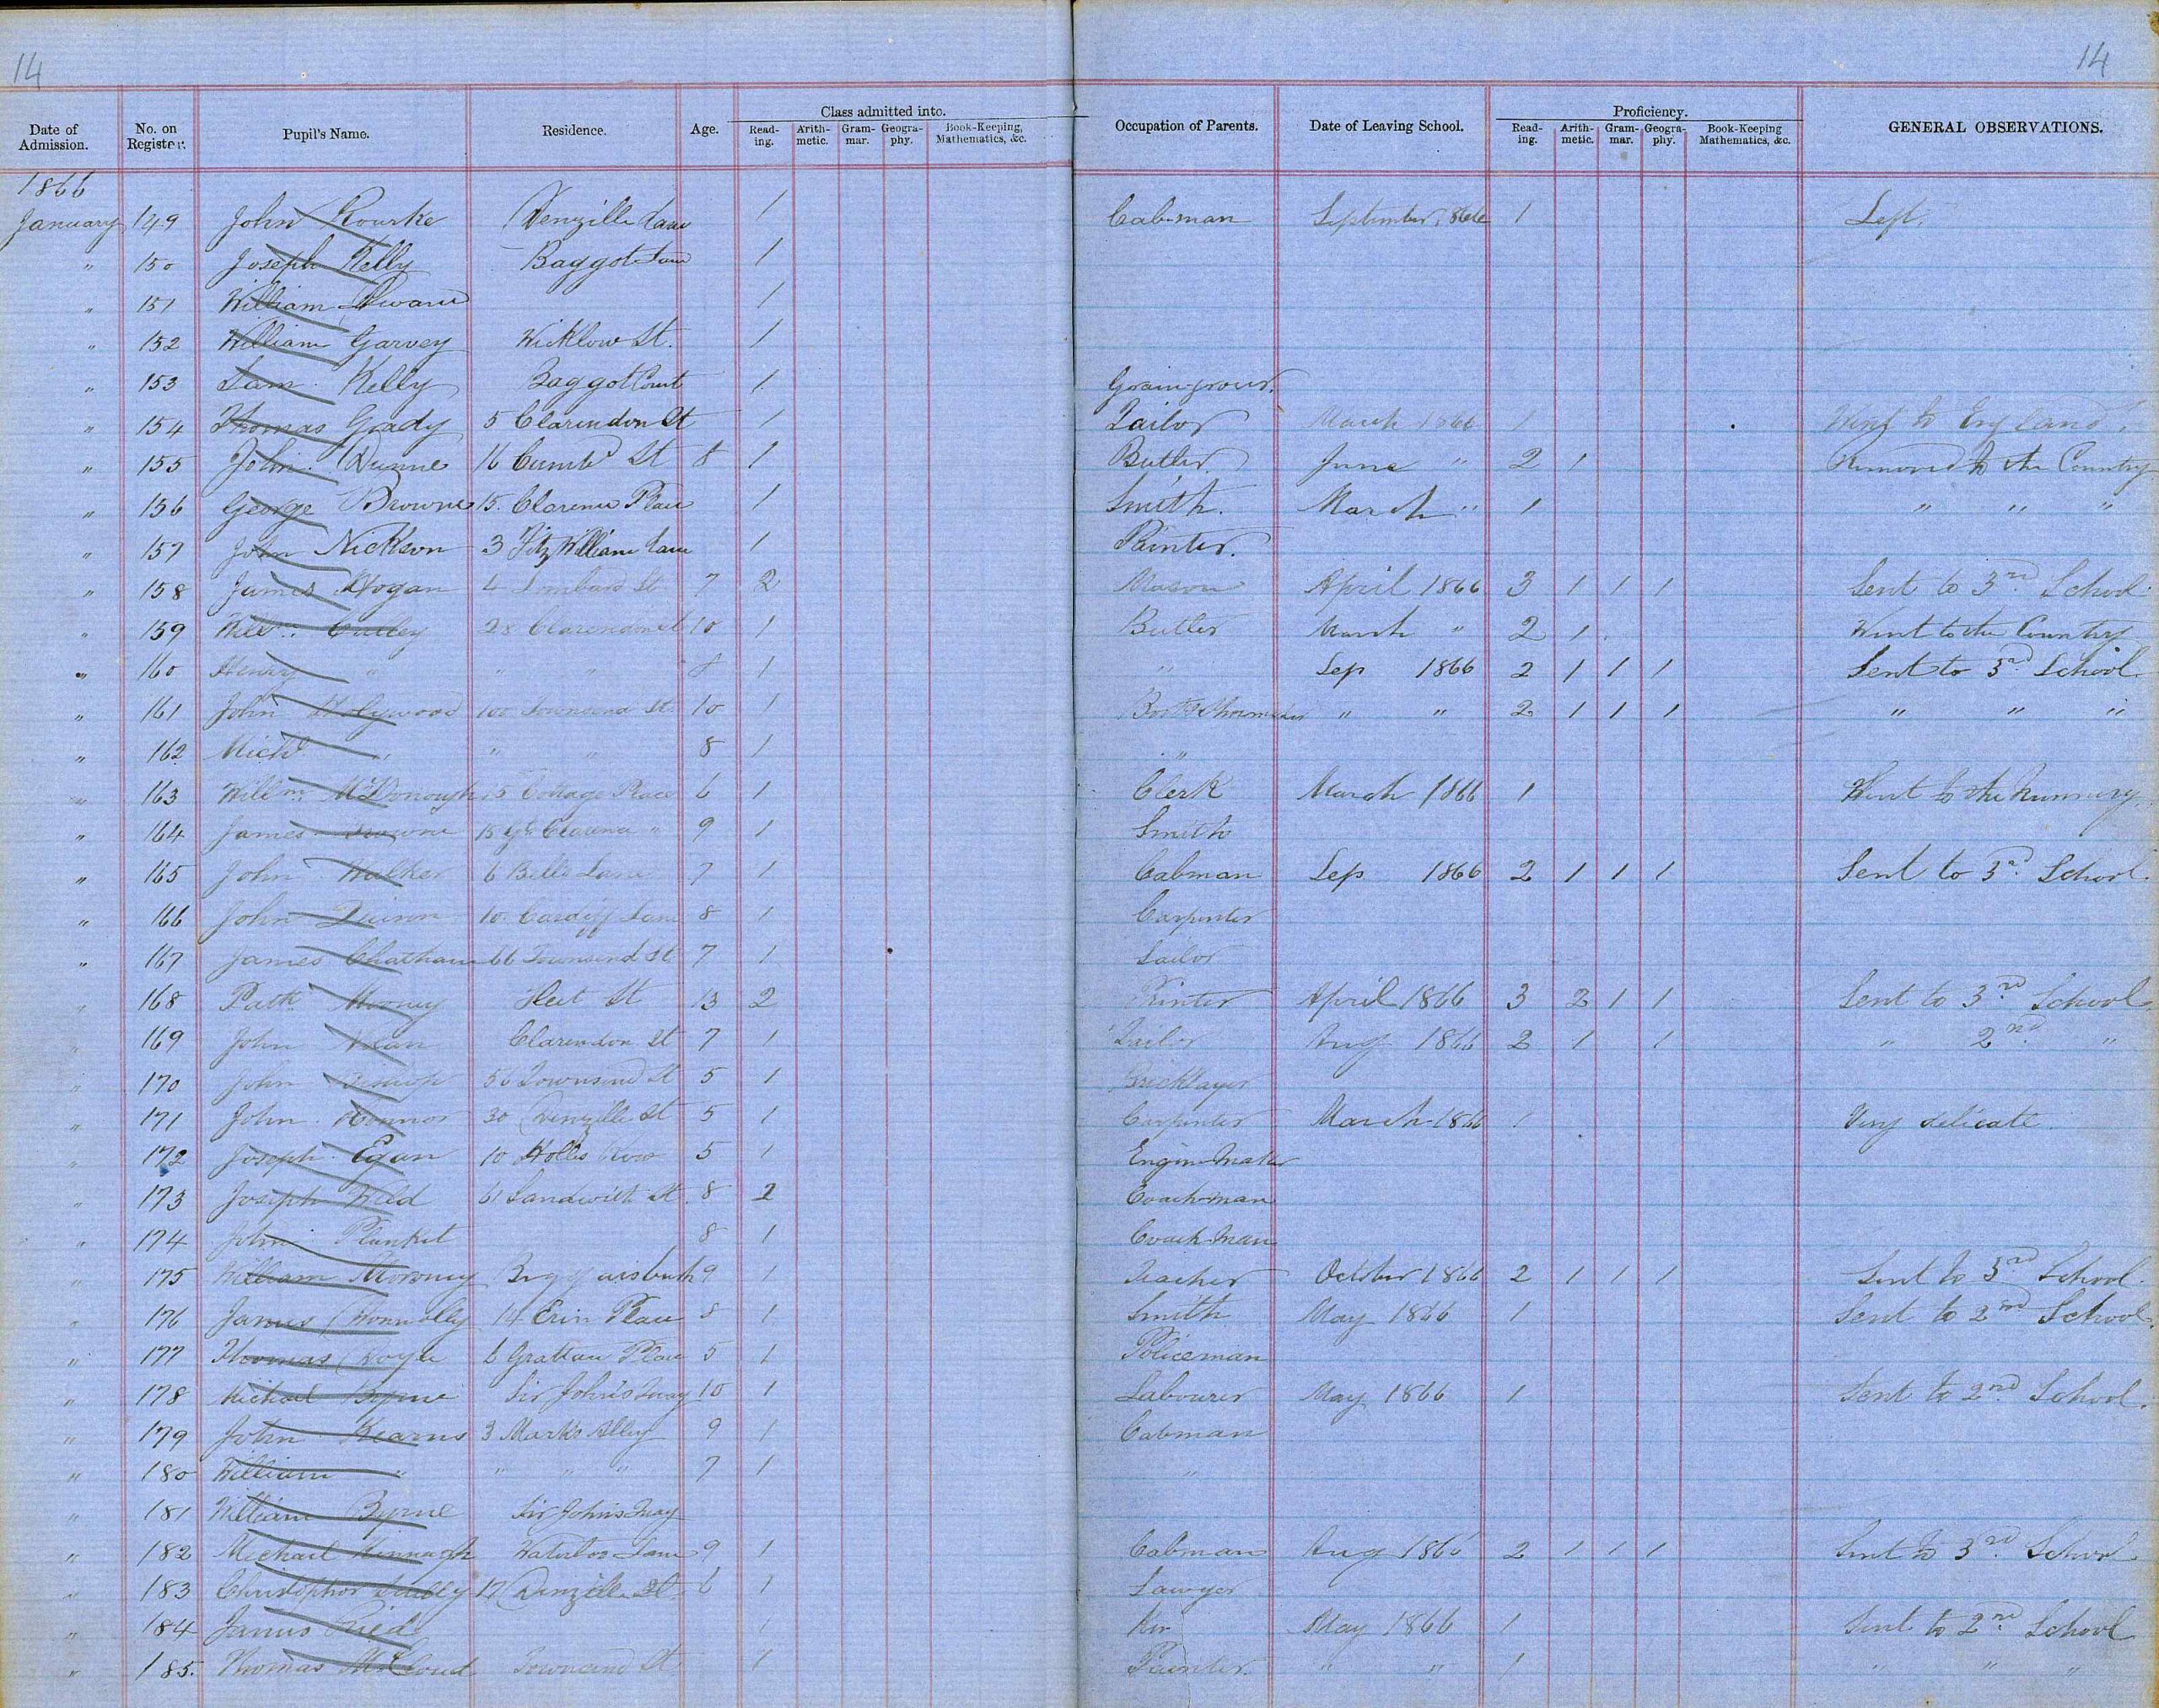 14 14
Class admitted into. Proficiency.
Date of Admission. No. on Register. Pupil's Name. Residence. Age. Read-ing. Arith-metic. Gram-mar. Geogra-phy. Book-Keeping, Mathematics, &c. Occupation of Parents. Date of Leaving School. Read-ing. Arith-metic. Gram-mar. Geogra-phy. Book-Keeping Mathematics, &c. GENERAL OBSERVATIONS.
1866
January 149 John Rourke Denzille Lane 1 Cab-man September, 1866 1 Left.
" 150 Joseph Kelly Baggot Lane 1
" 151 William 1
" 152 William Garvey Wicklow St. 1
" 153 Sam. Kelly Baggot Court 1
" 154 Thomas Grady 5 Clarendon St 1 Tailor March 1866 1 Went to England.
" 155 John. Dunne 16 Cumbd St 8 1 Butler June " 2 1 Removed to the Country
" 156 George Browne 15. Clarence Place 1 Smith. March " 1 " " "
" 157 John Nickson 3 Fitz William Lane 1 Painter.
" 158 James Hogan 4 Lombard St 7 2 Mason April 1866 3 1 1 1 Sent to 3rd School
" 159 Willm. 28 Clarendon St 10 1 Butler March " 2 1 Went to the Country
" 160 Henry " " " 8 1 " Sep 1866 2 1 1 1 Sent to 3rd School.
" 161 John Holywood 100 Townsend St 10 1 Boot & Shoemaker " " 2 1 1 1 " " "
" 162 Michl " " " 8 1 "
" 163 Willm. McDonough 15 Cottage Place 6 1 Clerk March 1866 1 Went to the Nunnery
" 164 James Browne 15 Clarence " 9 1 Smith
" 165 John Walker 6 Bells Lane 7 1 Cabman Sep 1866 2 1 1 1 Sent to 3rd School.
" 166 John 10. Cardiff Lane 8 1 Carpenter
" 167 James Chatham 66 Townsend St 7 1 Sailor
" 168 Patk. Mooney Fleet St 13 2 Printer April 1866 3 2 1 1 Sent to 3rd School
" 169 John Clarendon St 7 1 Tailor Aug 1866 2 1 1 " 2nd "
" 170 John 56 Townsend St 5 1 Bricklayer
" 171 John. Connor 30 Denzille St 5 1 Carpenter March 1866 1 Very delicate.
" 172 Joseph Egan 10 Holles Row 5 1 Engine Maker
" 173 Joseph 61 Sandwith St 8 2 Coach-man
" 174 John Plunket 8 1 Coach-Man
" 175 William Moroney Beggarsbush 9 1 Teacher October 1866 2 1 1 1 Sent to 3rd School.
" 176 James Connolly 14 Erin Place 8 1 Smith May 1866 1 Sent to 2nd School.
" 177 Thomas Doyle 6 Grattan Place 5 1 Policeman
" 178 Michael Byrne Sir John's Quay 10 1 Labourer May 1866 1 Sent to 2nd School.
" 179 John Kearns 3 Marks Alley 9 1 Cabman
" 180 William " " " " 7 1 "
" 181 William Byrne Sir John's Quay
" 182 Michael Kinnagh Waterloo Lane 9 1 Cabman Aug 1866 2 1 1 1 Sent to 3rd School.
" 183 Christopher 17 Denzille St. 6 1 Sawyer
" 184 James Ried 1 May 1866 1 Sent to 2nd School
" 185. Thomas McCloud Townsend St. 1 Painter. " " 1 " " "